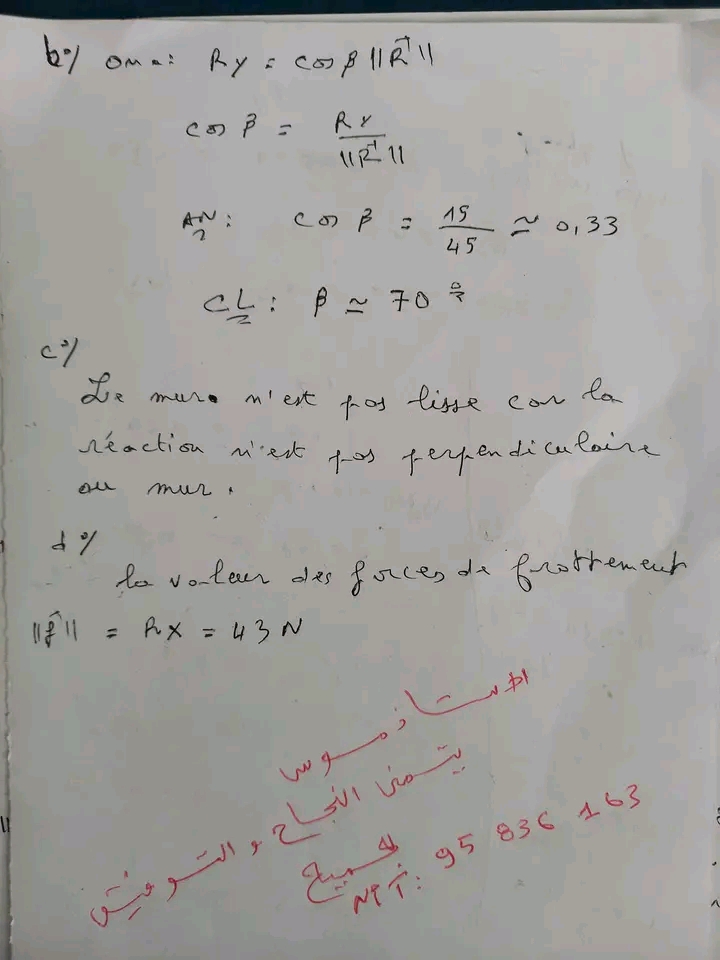 b°/ on a: Ry = cos β ||R⃗||
cos β = Ry / ||R⃗||
AN: cos β = 15 / 45 ≃ 0,33
CL: β ≃ 70°
c°/
Le mur n'est pas lisse car la
réaction n'est pas perpendiculaire
au mur.
d°/
la valeur des forces de frottement
||f⃗|| = RX = 43 N
الأستاذ موسى
يتمنى النجاح والتوفيق
للجميع
95 836 163